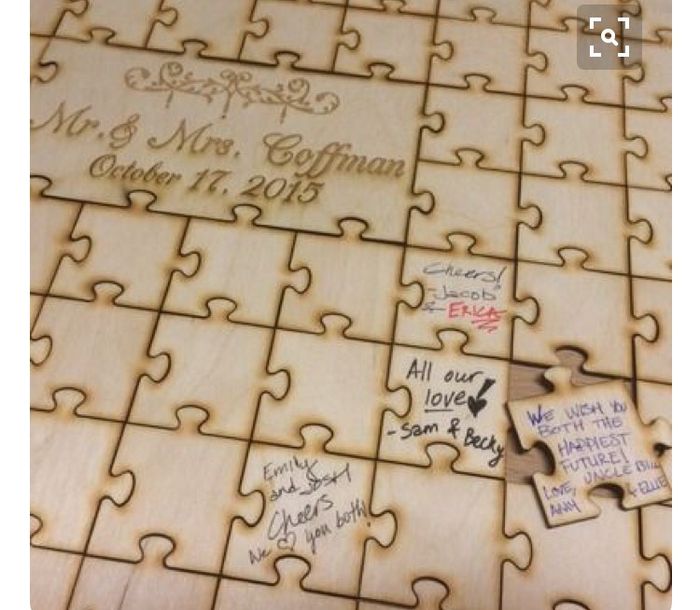 Mr. & Mrs. Coffman
October 17, 2015
Cheers!
-Jacob
& ERICA
All our
love!
-Sam & Becky
WE WISH YOU
BOTH THE
HAPPIEST
FUTURE!
LOVE, UNCLE BILL
& ELLIE
Emily
and JOSH
Cheers
We ♡ you both!